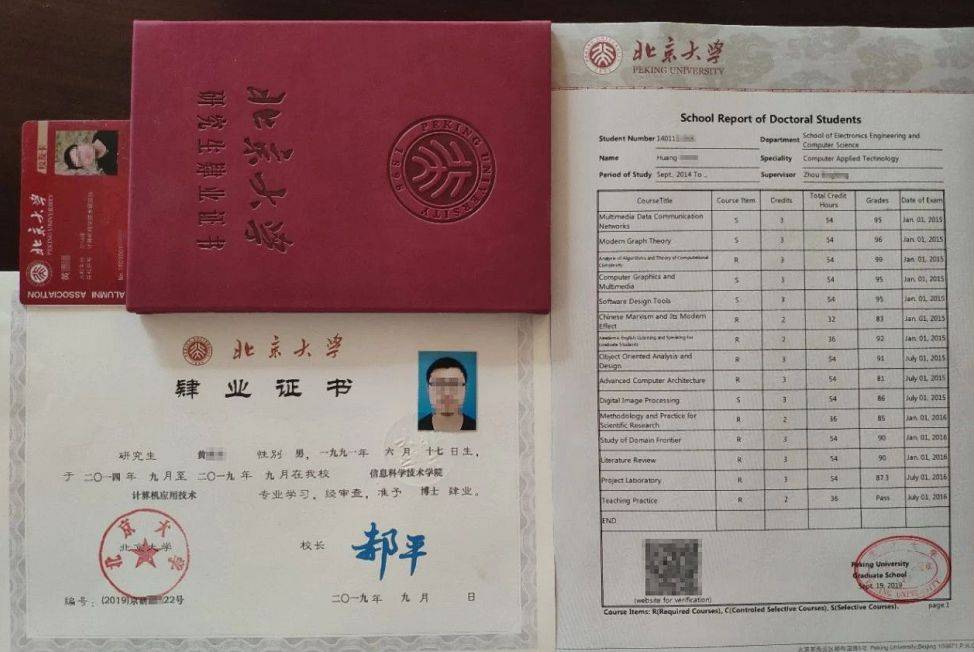 北京大学
研究生肄业证书
PEKING UNIVERSITY
1898
校友卡
北京大学
PEKING UNIVERSITY
黄
ALUMNI ASSOCIATION
北京大学
肄业证书
研究生 黄 性别 男，一九九一年 六月 十七日生，
于 二〇一四年 九月至 二〇一九年 九月在我校 信息科学技术学院
计算机应用技术 专业学习，经审查，准予 博士 肄业。
北京大学
北京大学
校长 郝平
编号：(2019)京 22号
二〇一九年 九月 日
北京大学
PEKING UNIVERSITY
School Report of Doctoral Students
Student Number 14011 Department School of Electronics Engineering and Computer Science
Name Huang Speciality Computer Applied Technology
Period of Study Sept. 2014 To . Supervisor Zhou
CourseTitle Course Item Credits Total Credit Hours Grades Date of Exam
Multimedia Data Communication Networks S 3 54 95 Jan. 01, 2015
Modern Graph Theory S 3 54 96 Jan. 01, 2015
Analysis of Algorithms and Theory of Computational Complexity R 3 54 99 Jan. 01, 2015
Computer Graphics and Multimedia S 3 54 95 Jan. 01, 2015
Software Design Tools S 3 54 95 Jan. 01, 2015
Chinese Marxism and Its Modern Effect R 2 32 83 Jan. 01, 2015
Academic English Listening and Speaking for Graduate Students R 2 36 92 Jan. 01, 2015
Object Oriented Analysis and Design R 3 54 91 July 01, 2015
Advanced Computer Architecture R 3 54 81 July 01, 2015
Digital Image Processing S 3 54 86 July 01, 2015
Methodology and Practice for Scientific Research R 2 36 85 Jan. 01, 2016
Study of Domain Frontier R 3 54 90 Jan. 01, 2016
Literature Review R 3 54 90 Jan. 01, 2016
Project Laboratory R 3 54 87.3 July 01, 2016
Teaching Practice R 2 36 Pass July 01, 2016
END
Peking University
Graduate School
Sept. 19, 2019
(website for verification)
Course Items: R(Required Courses), C(Controled Selective Courses), S(Selective Courses).
page:1